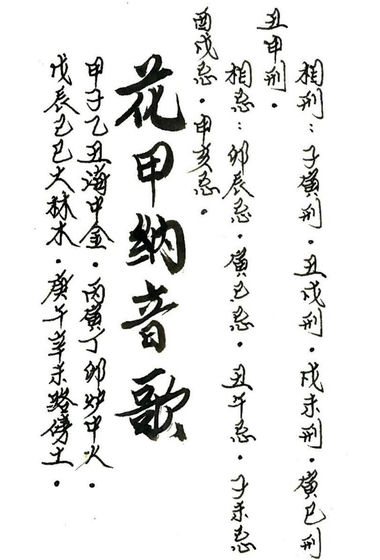 相刑：子寅刑。丑戌刑。戌未刑。寅巳刑
丑申刑。
相忌：卯辰忌。寅巳忌。丑午忌。子未忌
酉戌忌。申亥忌。
花甲納音歌
甲子乙丑海中金。丙寅丁卯炉中火。
戊辰己巳大林木。庚午辛未路傍土。